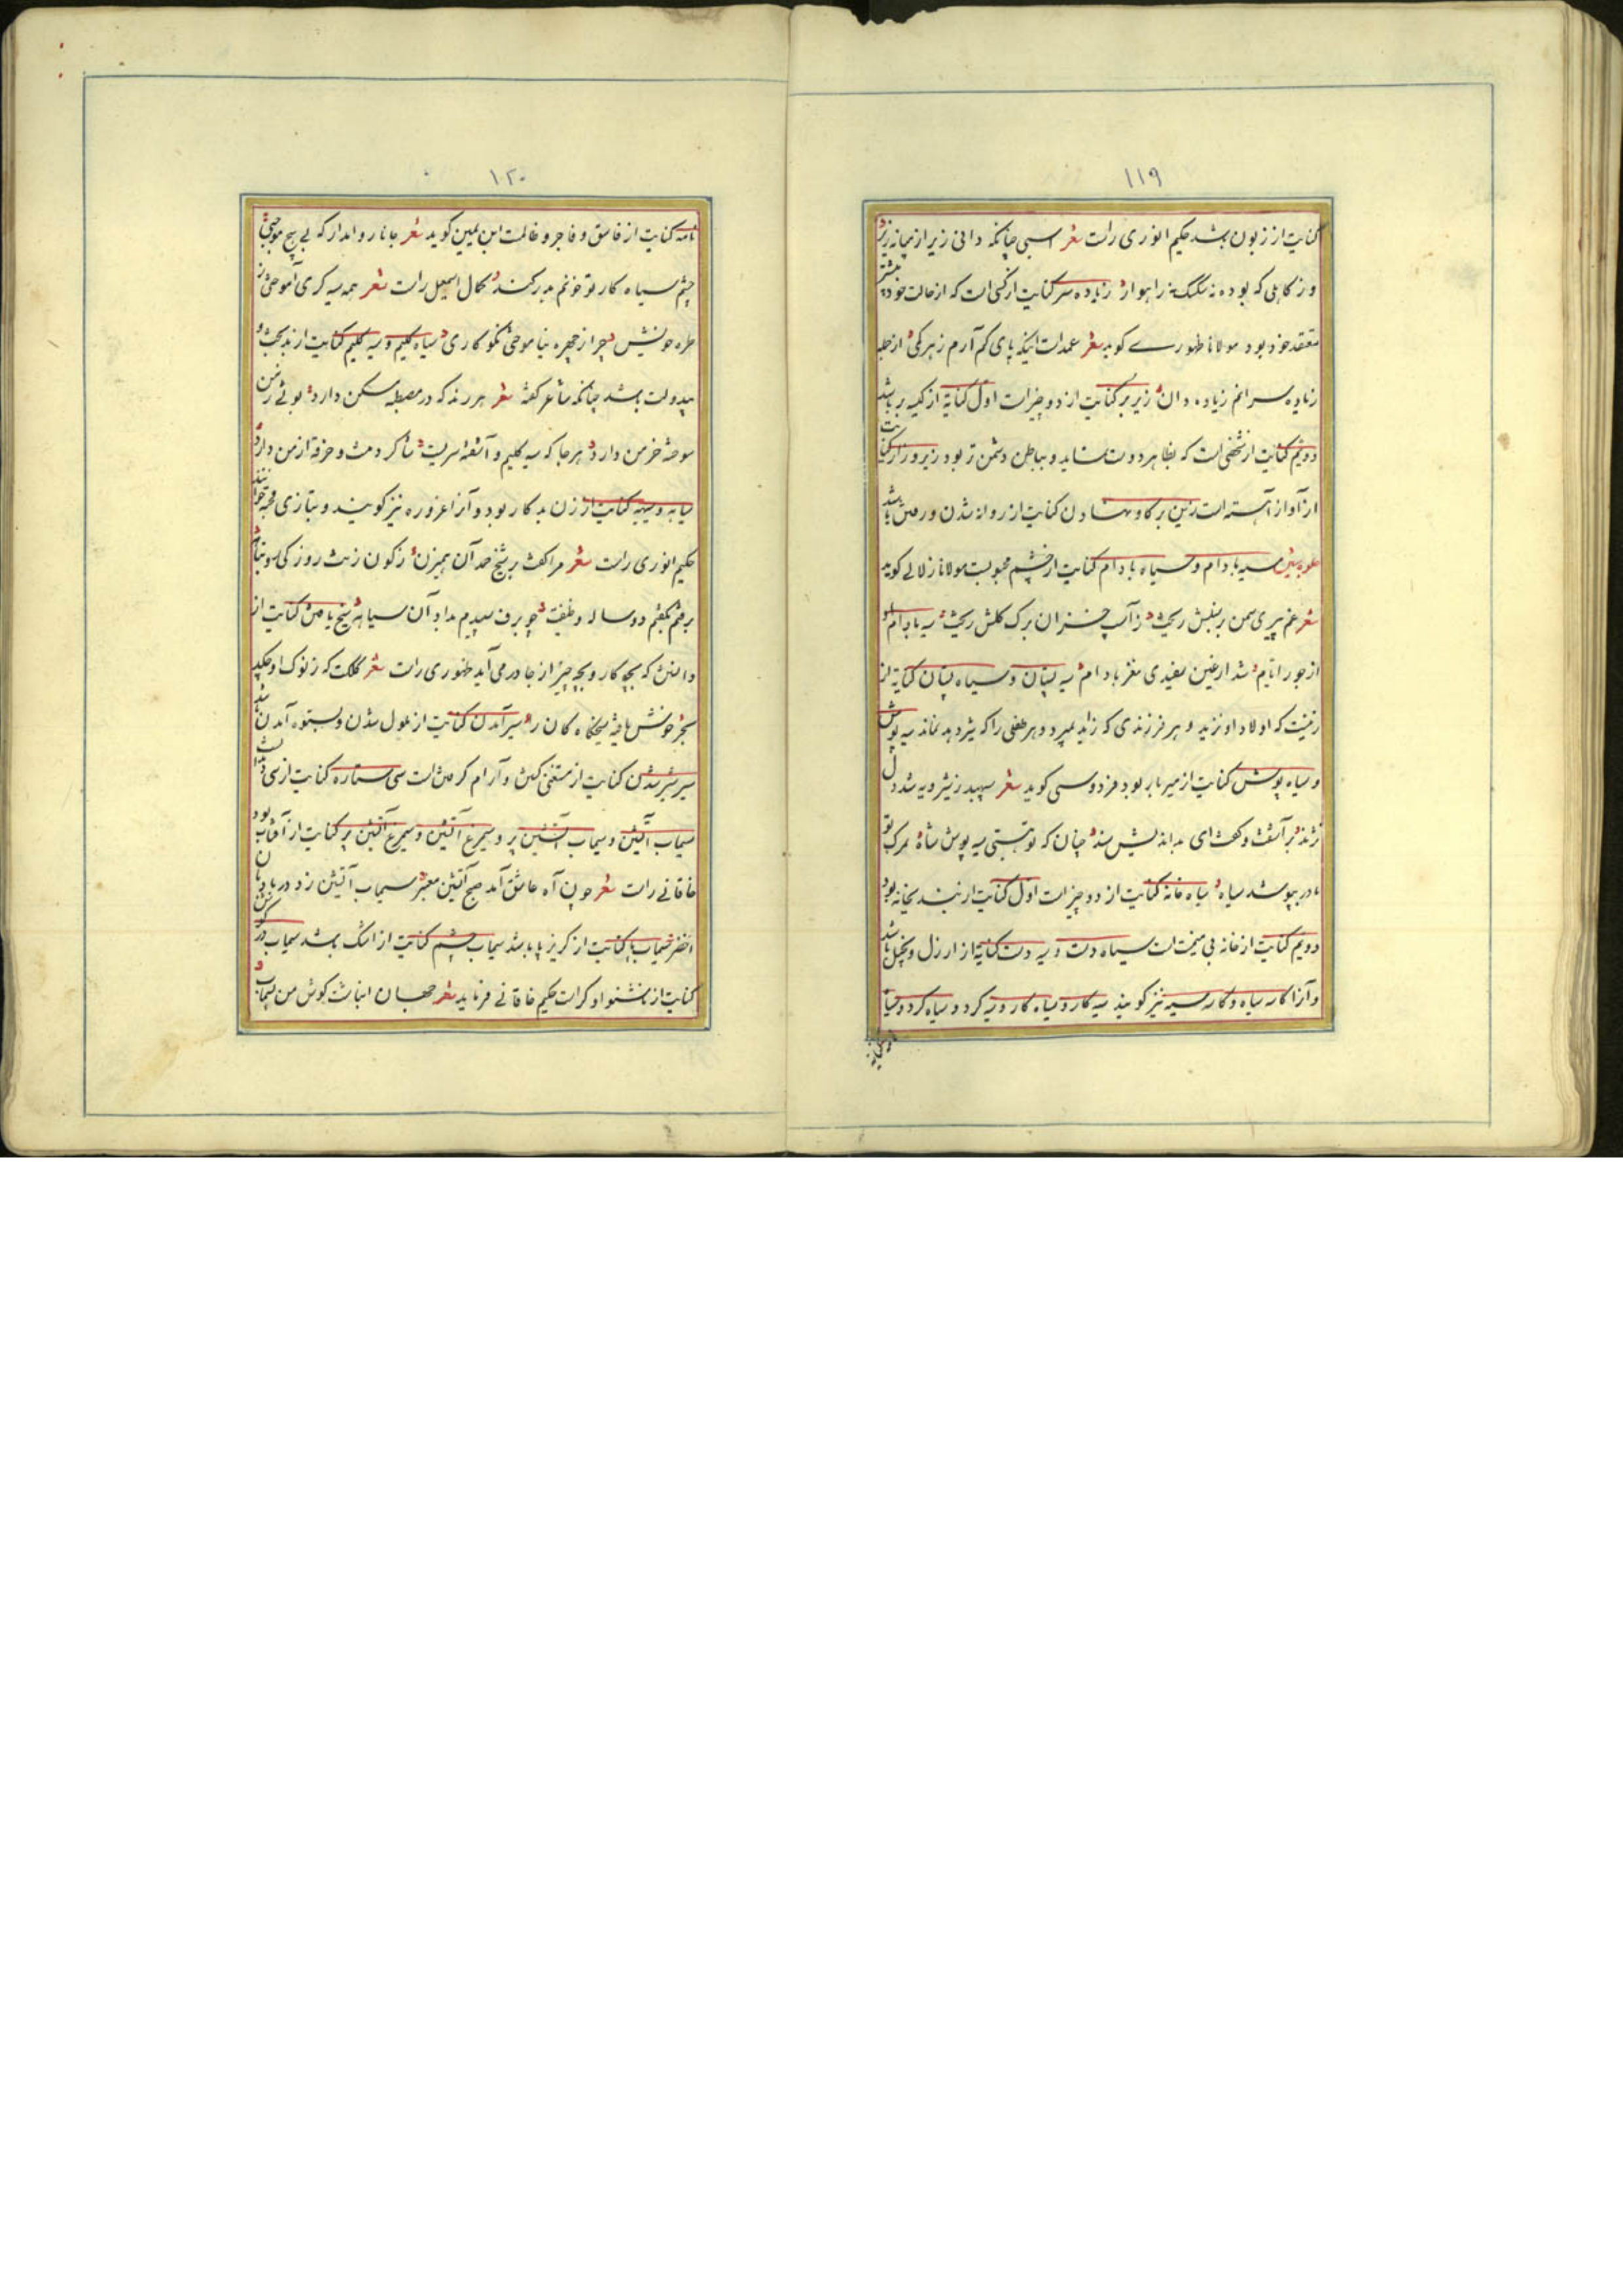 ۱۱۹
کنایت از زبون باشد حکیم انوری راست شعر اسبی چنانکه دانی زیر از میانه زیر
وز کاهلی که بوده نه سکسک نه راهوار زیاده سر کنایت از کسی است که از حالت خود بیشتر
معتقد خود بود مولانا ظهوری گوید شعر عمداست اینکه پای کم آرم ز هر کمی از جمله
زیاده سرانم زیاده دان زیر بر کنایت از دو چیز است اول کنایة از کیسه بر باشد
دویم کنایت از شخصی است که بظاهر دوست نماید و بباطن دشمن تر بود زیر و زار کنایت
از آواز آهسته است زین بر گاو نهادن کنایت از روانه شدن و رفتن باشد
سیه بادام و سیاه بادام کنایت از چشم محبوبست مولانا زلالی گوید
شعر غم پیری سمن بر بنفش ریخت ز آسیب خزان برگ گلش ریخت سیه بادام او
از جور ایام شد از عین سفیدی مغز بادام سیه پستان و سیاه پستان کنایة از
زنیست که اولاد او نزید و هر فرزندی که زاید بمیرد و هر طفلی را که شیر دهد نماند سیه پوش
و سیاه پوش کنایت از میر بار بود فردوسی گوید شعر سپهبد ز شیرویه شد دل
نژند برآشفت و گفت ای بد اندیش مند چنان که تو هستی سیه پوش شاه بمرگ تو
مادر بپوشد سیاه سیاه خانه کنایت از دو چیز است اول کنایت از بندیخانه بود
دویم کنایت از خانه بی میمنت است سیاه دست و سیه دست کنایة از ارزل و بخیل باشد
و آنرا کاسه سیاه و کاسه سیه نیز گویند سیه کار و سیاه کار و سیه کرد و سیاه کرد و سیاه
۱۲۰
نامه کنایت از فاسق و فاجر و ظالمست ابن یمین گوید شعر جانا روا مدار که بی هیچ موجبی
چشم سیاه کار تو خونم بدر کند کمال اسمعیل راست شعر همه سیه کری آموختی ز
طره خویش چرا ز چهره نیاموختی نکوکاری سیاه گلیم و سیه گلیم کنایت از بدبخت و
بیدولت باشد چنانکه شاعر گفته شعر هر رند که در مصطبه مسکن دارد بوئی ز من
سوخته خرمن دارد هر جا که سیه گلیم و آشفته سریست شاگرد منست و خرقه از من دارد
کنایت از زن بدکار بود و آنرا غرزه نیز گویند و بتازی قحبه خوانند
حکیم انوری راست شعر مرا گفت بر شیخ
برفتم بگفتم دو ساله وظیفت چو برف سپیدم بداد آن سیاهه سیخ یافتن کنایت از
دانستن که بچه کار و بچه چیز از جا در می آید ظهوری راست شعر کلکت که ز نوک او چکد
سیر آمدن کنایت از ملول شدن و بستوه آمدن باشد
سیر شیر شدن کنایت از مستغنی گشتن و آرام گرفتن است سی ستاره کنایت از سی
سیماب آتشین و سیماب آتشین پر و سیمرغ آتشین و سیمرغ آتشین پر کنایت از آفتاب بود
خاقانی راست شعر چون آه عاشق آمد صبح آتشین معنبر سیماب آتشین زد در بادبان
اخضر سیماب پا کنایت از گریز پا باشد سیماب چشم کنایت از اشک باشد سیماب در گوش
کنایت از ناشنوا و کر است حکیم خاقانی فرماید شعر جهان انباشت گوش من بسیماب